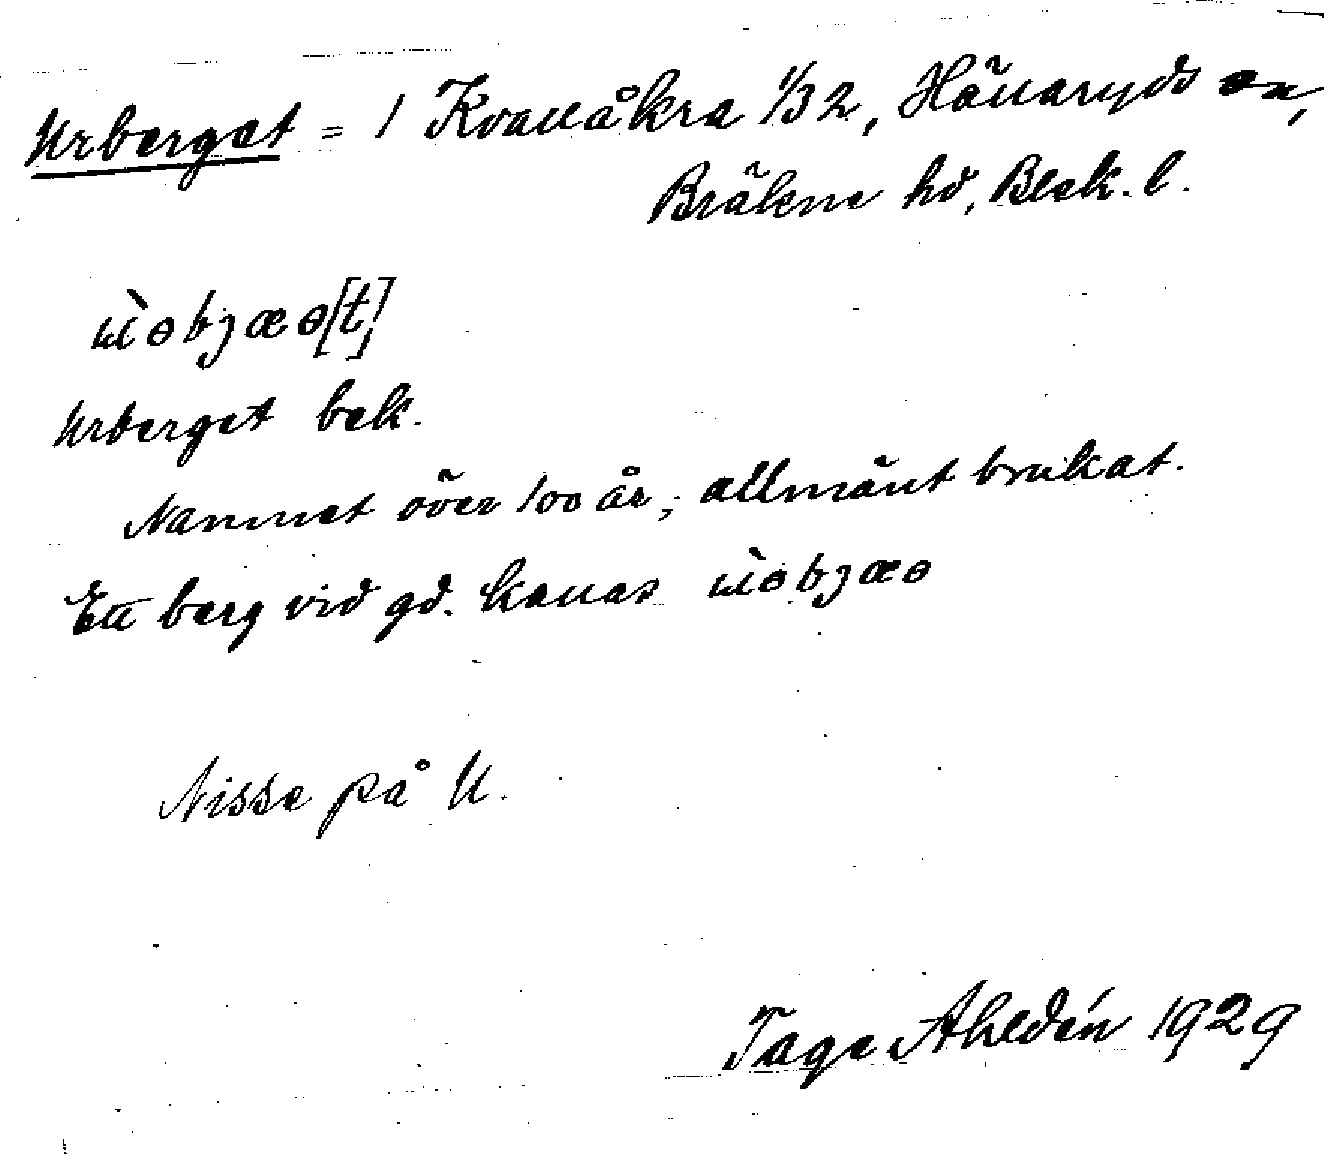 Urberget = 1 Kvallåkra 1/32, Hällaryds sn,
Bräkne hd, Blek. l.
ɯ̀ɘbȷæɘ[t]
Urberget bek.
Namnet över 100 år, allmänt brukat.
Ett berg vid gd. kallas ɯ̀ɘbȷæɘ
Nisse på U.
Tage Ahldén 1929